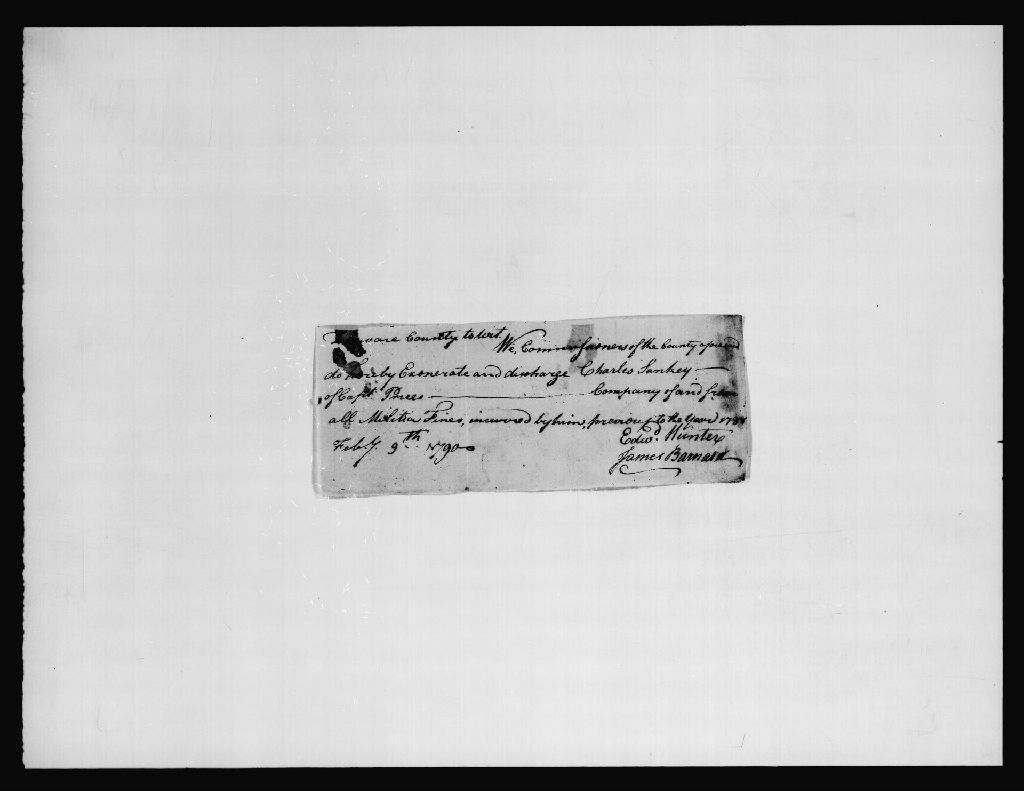 Delaware County to wit.
We, Commissioners of the County aforesaid
do hereby Exonerate and discharge Charles Sankey
of Capt. Prices Company of and from
all Militia Fines, incurred by him, previous to the Year
Feby. 9th 1790
Edwd. Hunter
James Barnard